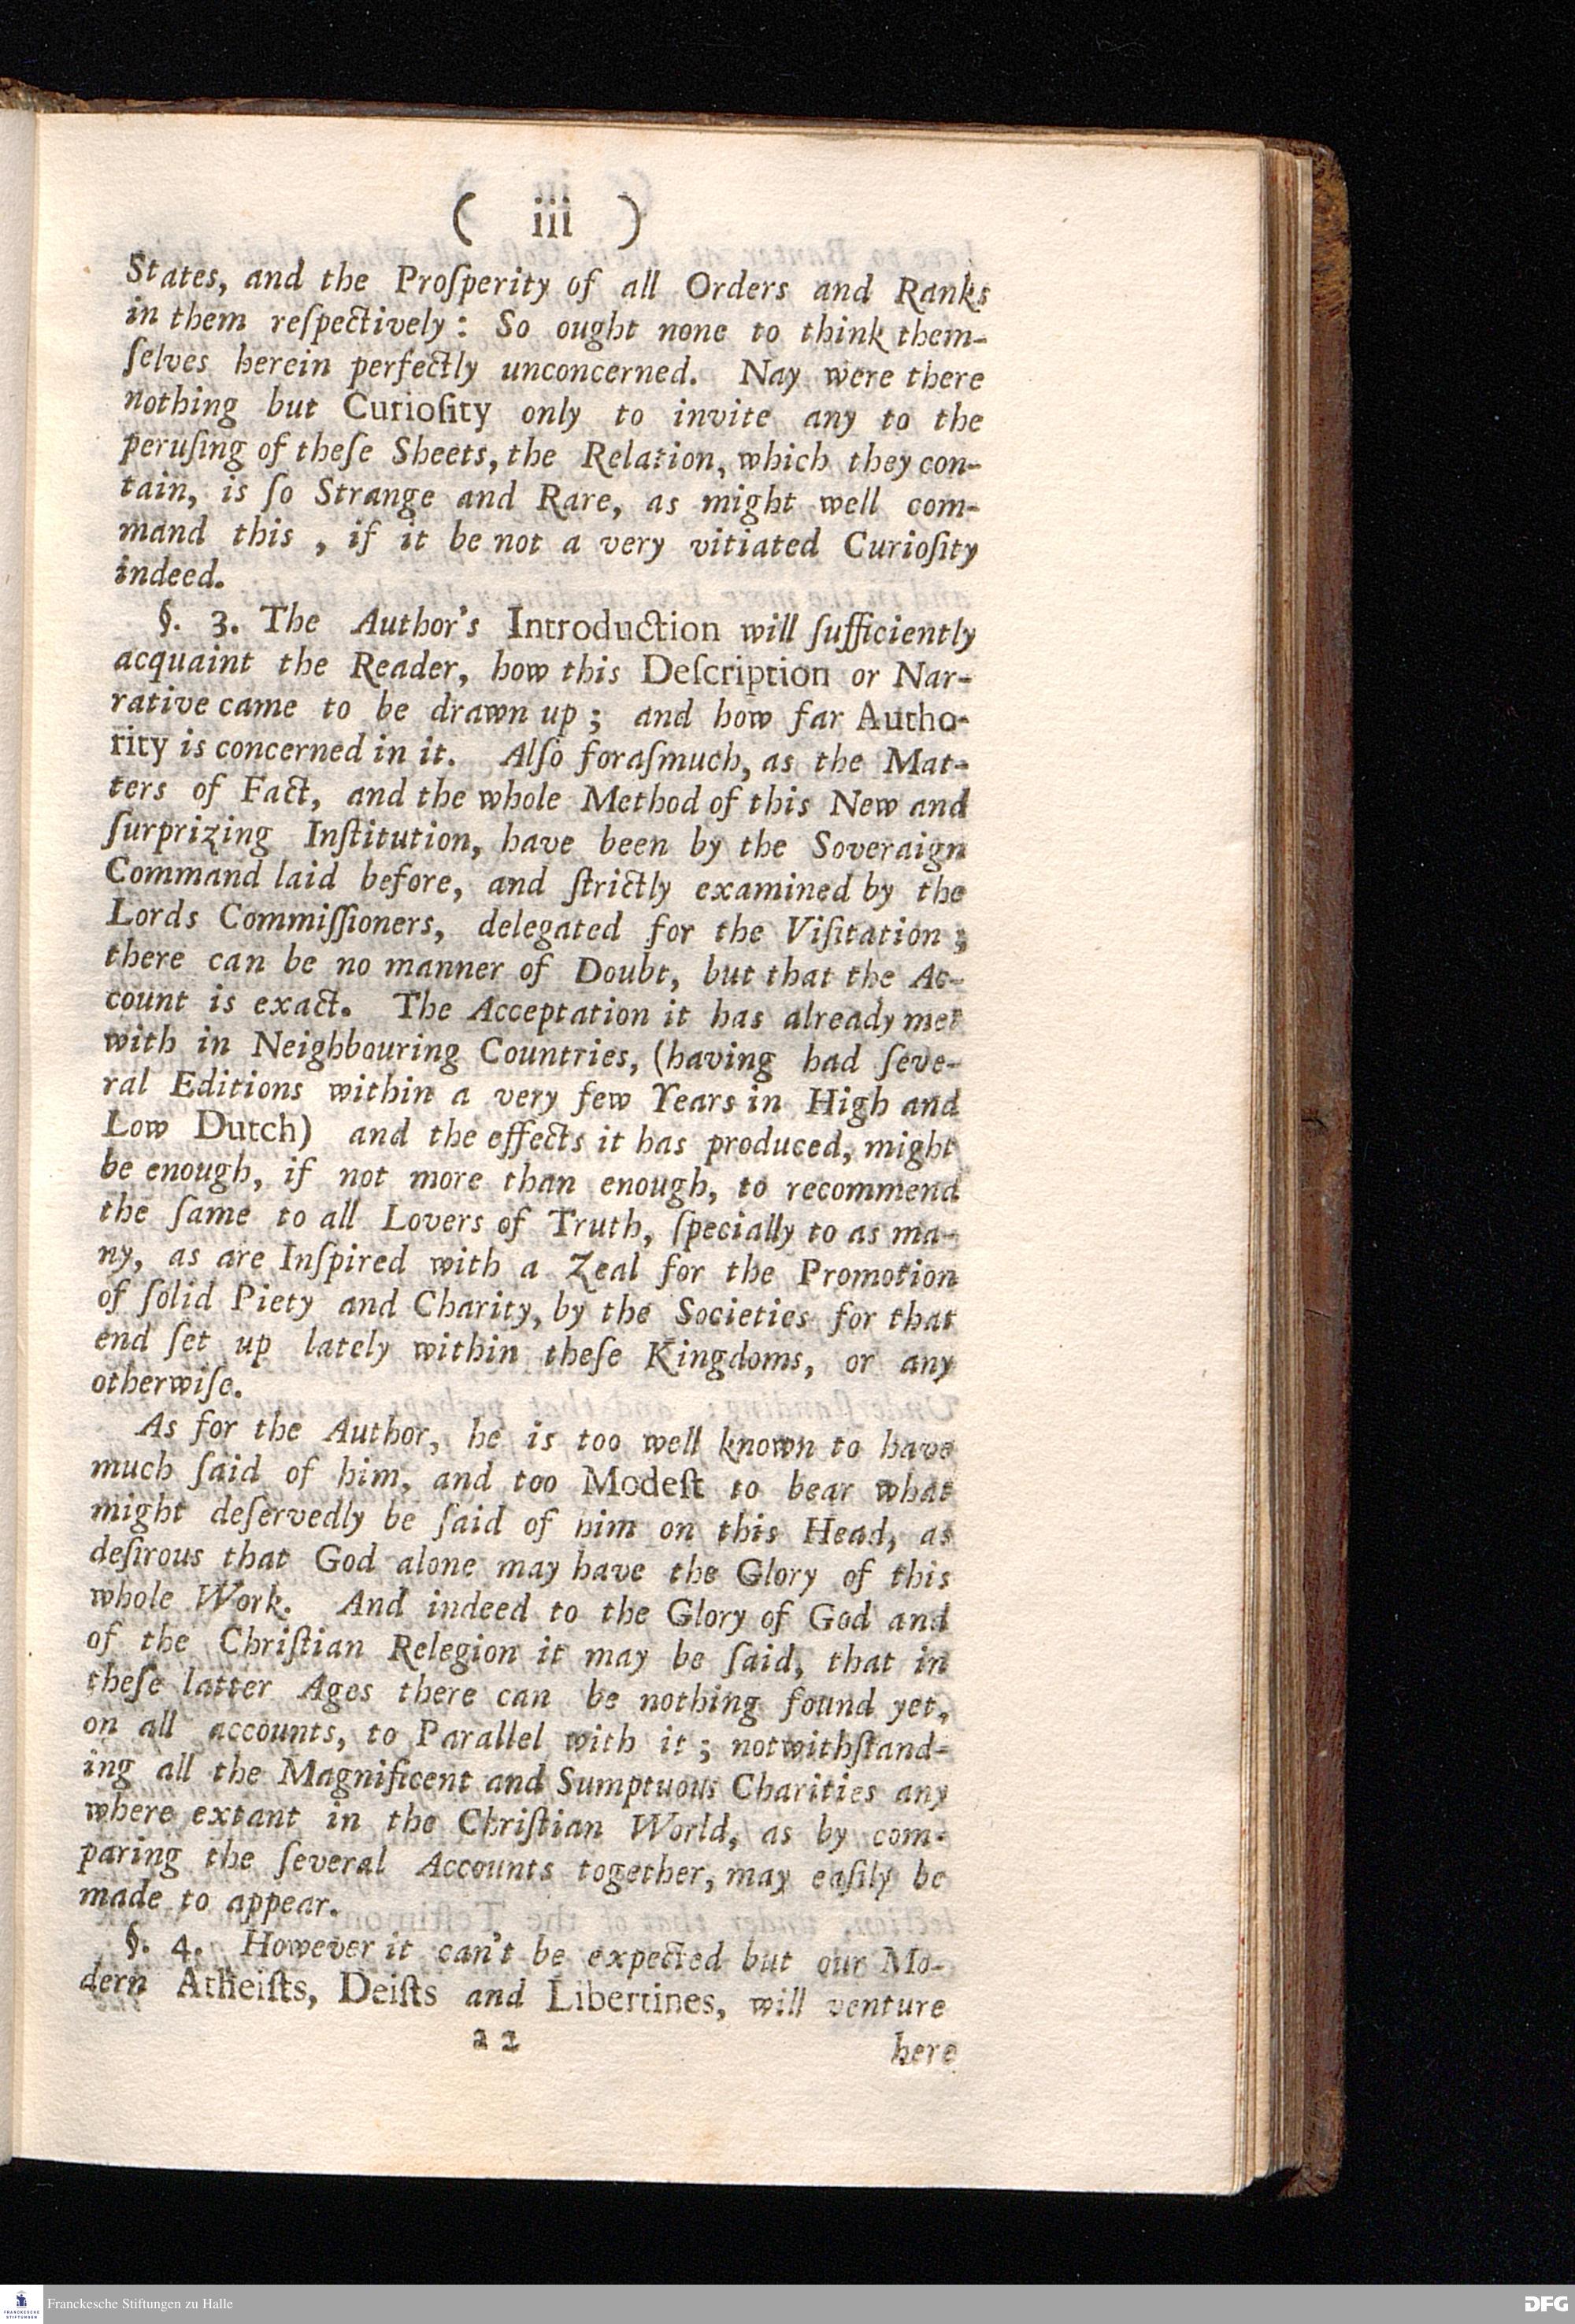 ( iii )
States, and the Proſperity of all Orders and Ranks
in them reſpectively: So ought none to think them-
ſelves herein perfectly unconcerned. Nay were there
nothing but Curioſity only to invite any to the
peruſing of theſe Sheets, the Relation, which they con-
tain, is ſo Strange and Rare, as might well com-
mand this , if it be not a very vitiated Curioſity
indeed.
§. 3. The Author's Introduction will ſufficiently
acquaint the Reader, how this Deſcription or Nar-
rative came to be drawn up; and how far Autho-
rity is concerned in it. Alſo foraſmuch, as the Mat-
ters of Fact, and the whole Method of this New and
ſurprizing Inſtitution, have been by the Soveraign
Command laid before, and ſtrictly examined by the
Lords Commiſſioners, delegated for the Viſitation;
there can be no manner of Doubt, but that the Ac-
count is exact. The Acceptation it has already met
with in Neighbouring Countries, (having had ſeve-
ral Editions within a very few Years in High and
Low Dutch) and the effects it has produced, might
be enough, if not more than enough, to recommend
the ſame to all Lovers of Truth, ſpecially to as ma-
ny, as are Inſpired with a Zeal for the Promotion
of ſolid Piety and Charity, by the Societies for that
end ſet up lately within theſe Kingdoms, or any
otherwiſe.
As for the Author, he is too well known to have
much ſaid of him, and too Modeſt to bear what
might deſervedly be ſaid of him on this Head, as
deſirous that God alone may have the Glory of this
whole Work. And indeed to the Glory of God and
of the Chriſtian Relegion it may be ſaid, that in
theſe latter Ages there can be nothing found yet,
on all accounts, to Parallel with it; notwithſtand-
ing all the Magnificent and Sumptuous Charities any
where extant in the Chriſtian World, as by com-
paring the ſeveral Accounts together, may eaſily be
made to appear.
§. 4. However it can't be expected but our Mo-
dern Atheiſts, Deiſts and Libertines, will venture
a 2
here
FRANCKESCHE STIFTUNGEN
Franckeſche Stiftungen zu Halle
DFG